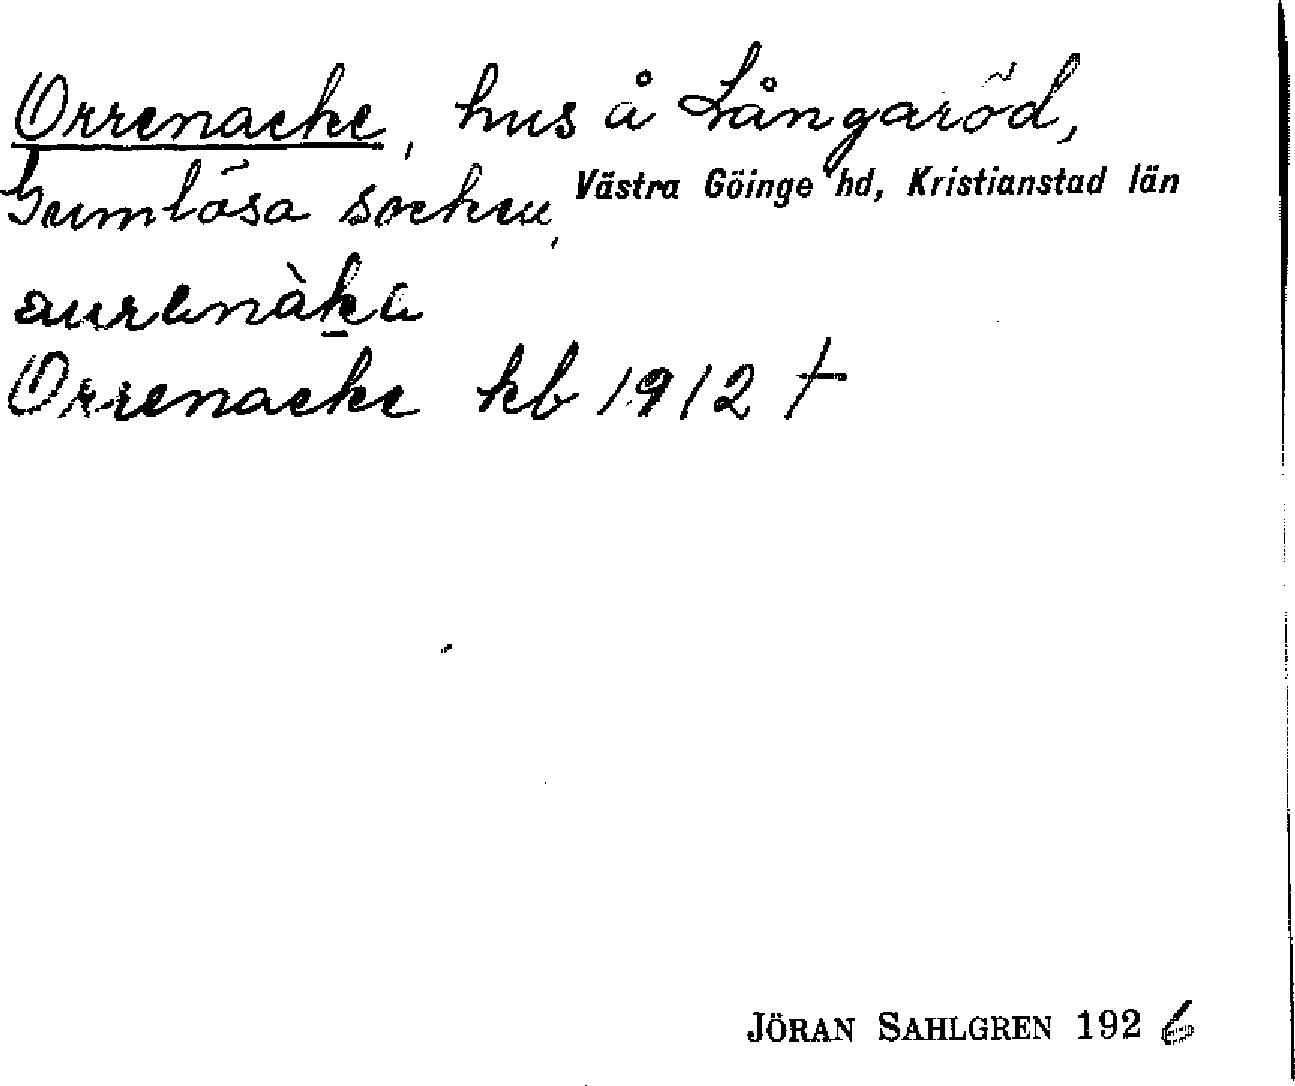 Orrenacke, hus å Långaröd,
Gumlösa socken, Västra Göinge hd, Kristianstad län
aurenàka
Orrenacke kb 1912 †
JÖRAN SAHLGREN 1926